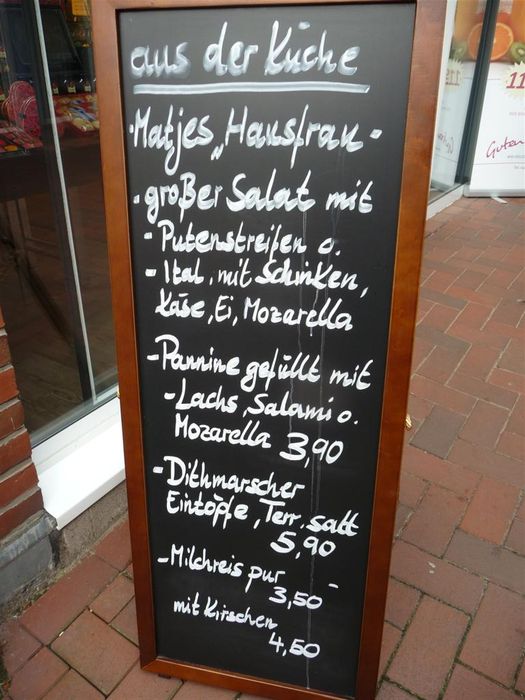 aus der Küche
- Matjes „Hausfrau -
- großer Salat mit
- Putenstreifen o.
- Ital. mit Schinken,
Käse, Ei, Mozarella
- Pannine gefüllt mit
- Lachs, Salami o.
Mozarella 3,90
- Dithmarscher
Eintöpfe, Terr. satt
5,90
- Milchreis pur -
3,50
mit Kirschen
4,50
11
Guten